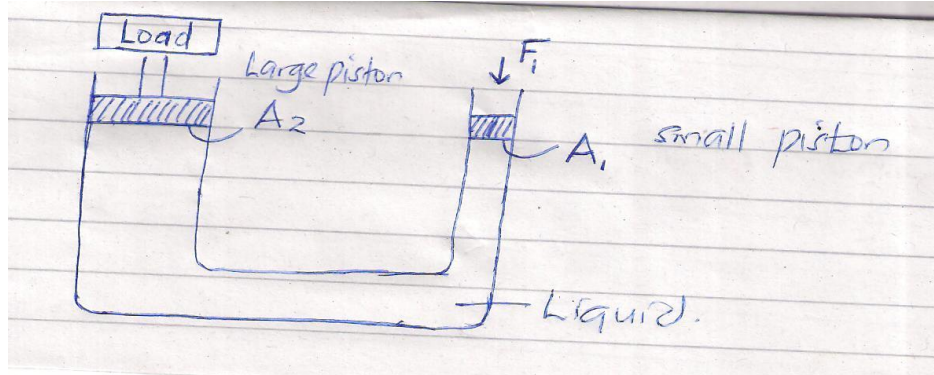 Load
F₁
Large piston
A₂
A₁
small piston
Liquid.